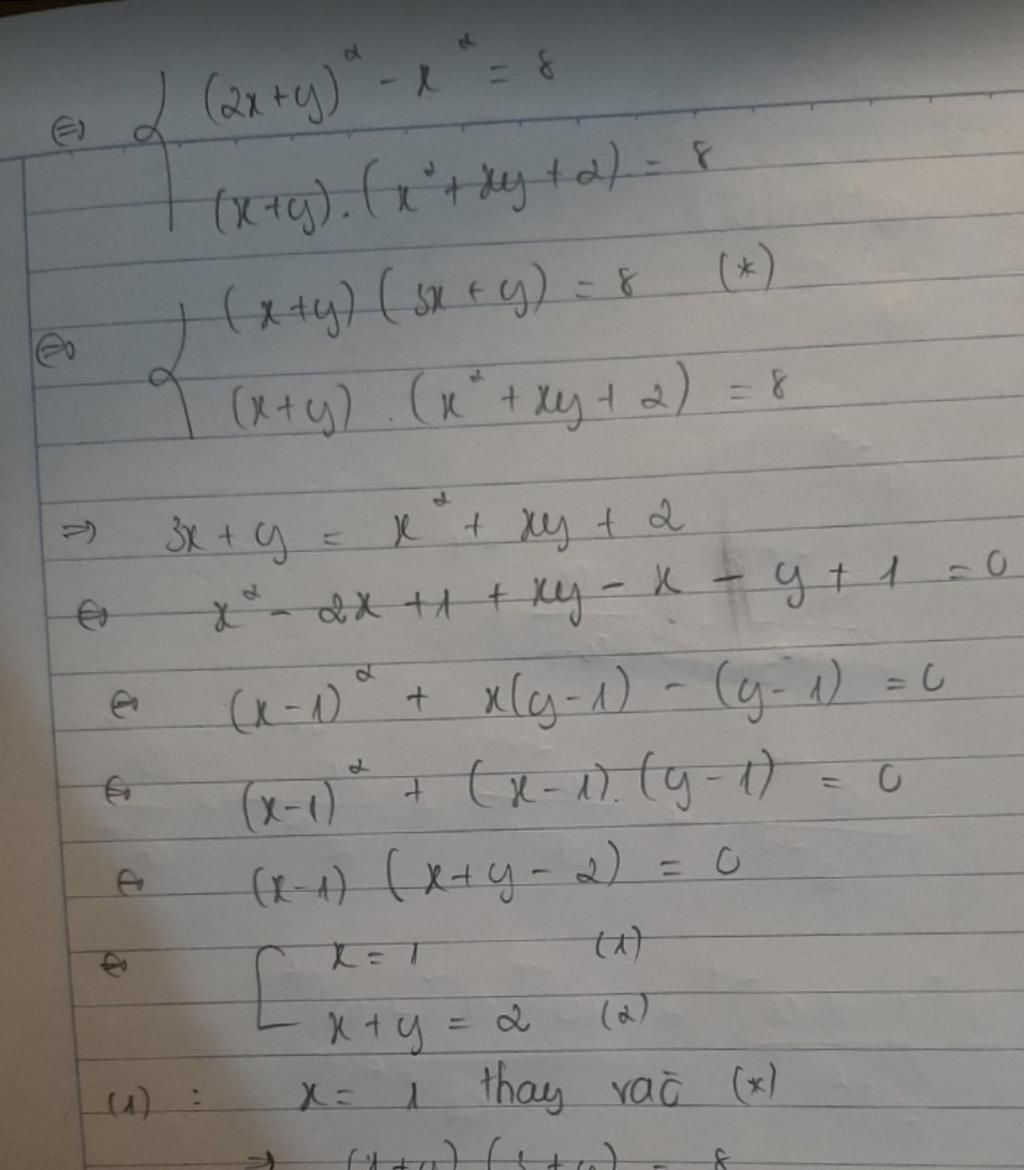 ⇔ { (2x+y)² - x² = 8
(x+y).(x²+xy+2) = 8
⇔ { (x+y)(3x+y) = 8 (*)
(x+y).(x²+xy+2) = 8
⇒ 3x+y = x² + xy + 2
⇔ x² - 2x + 1 + xy - x - y + 1 = 0
⇔ (x-1)² + x(y-1) - (y-1) = 0
⇔ (x-1)² + (x-1).(y-1) = 0
⇔ (x-1)(x+y-2) = 0
⇔ [ x = 1 (1)
x+y = 2 (2)
(1) : x = 1 thay vào (*)
⇒ (1+y)(3+y) = 8